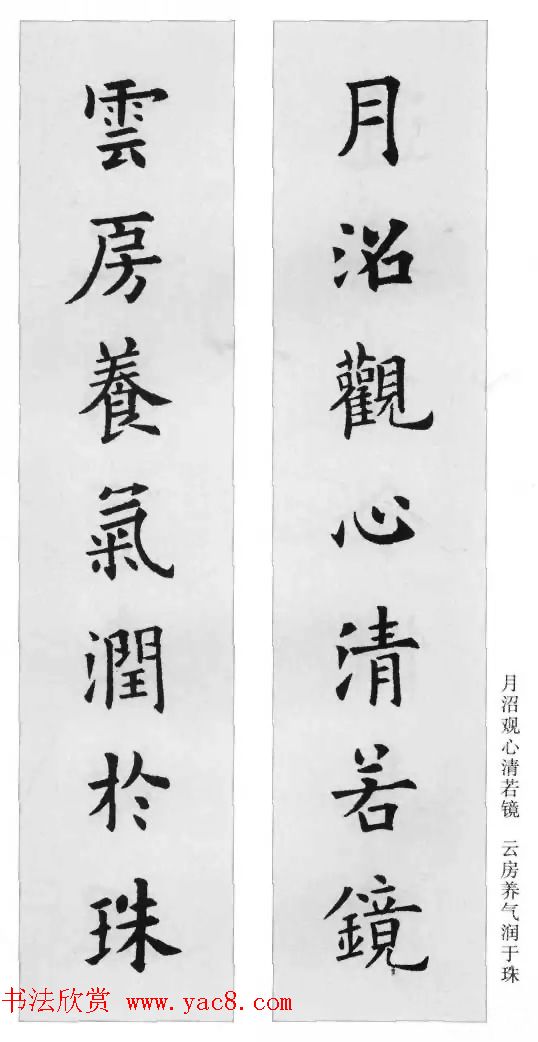 月沼觀心清若鏡
雲房養氣潤於珠
月沼观心清若镜 云房养气润于珠
书法欣赏 www.yac8.com